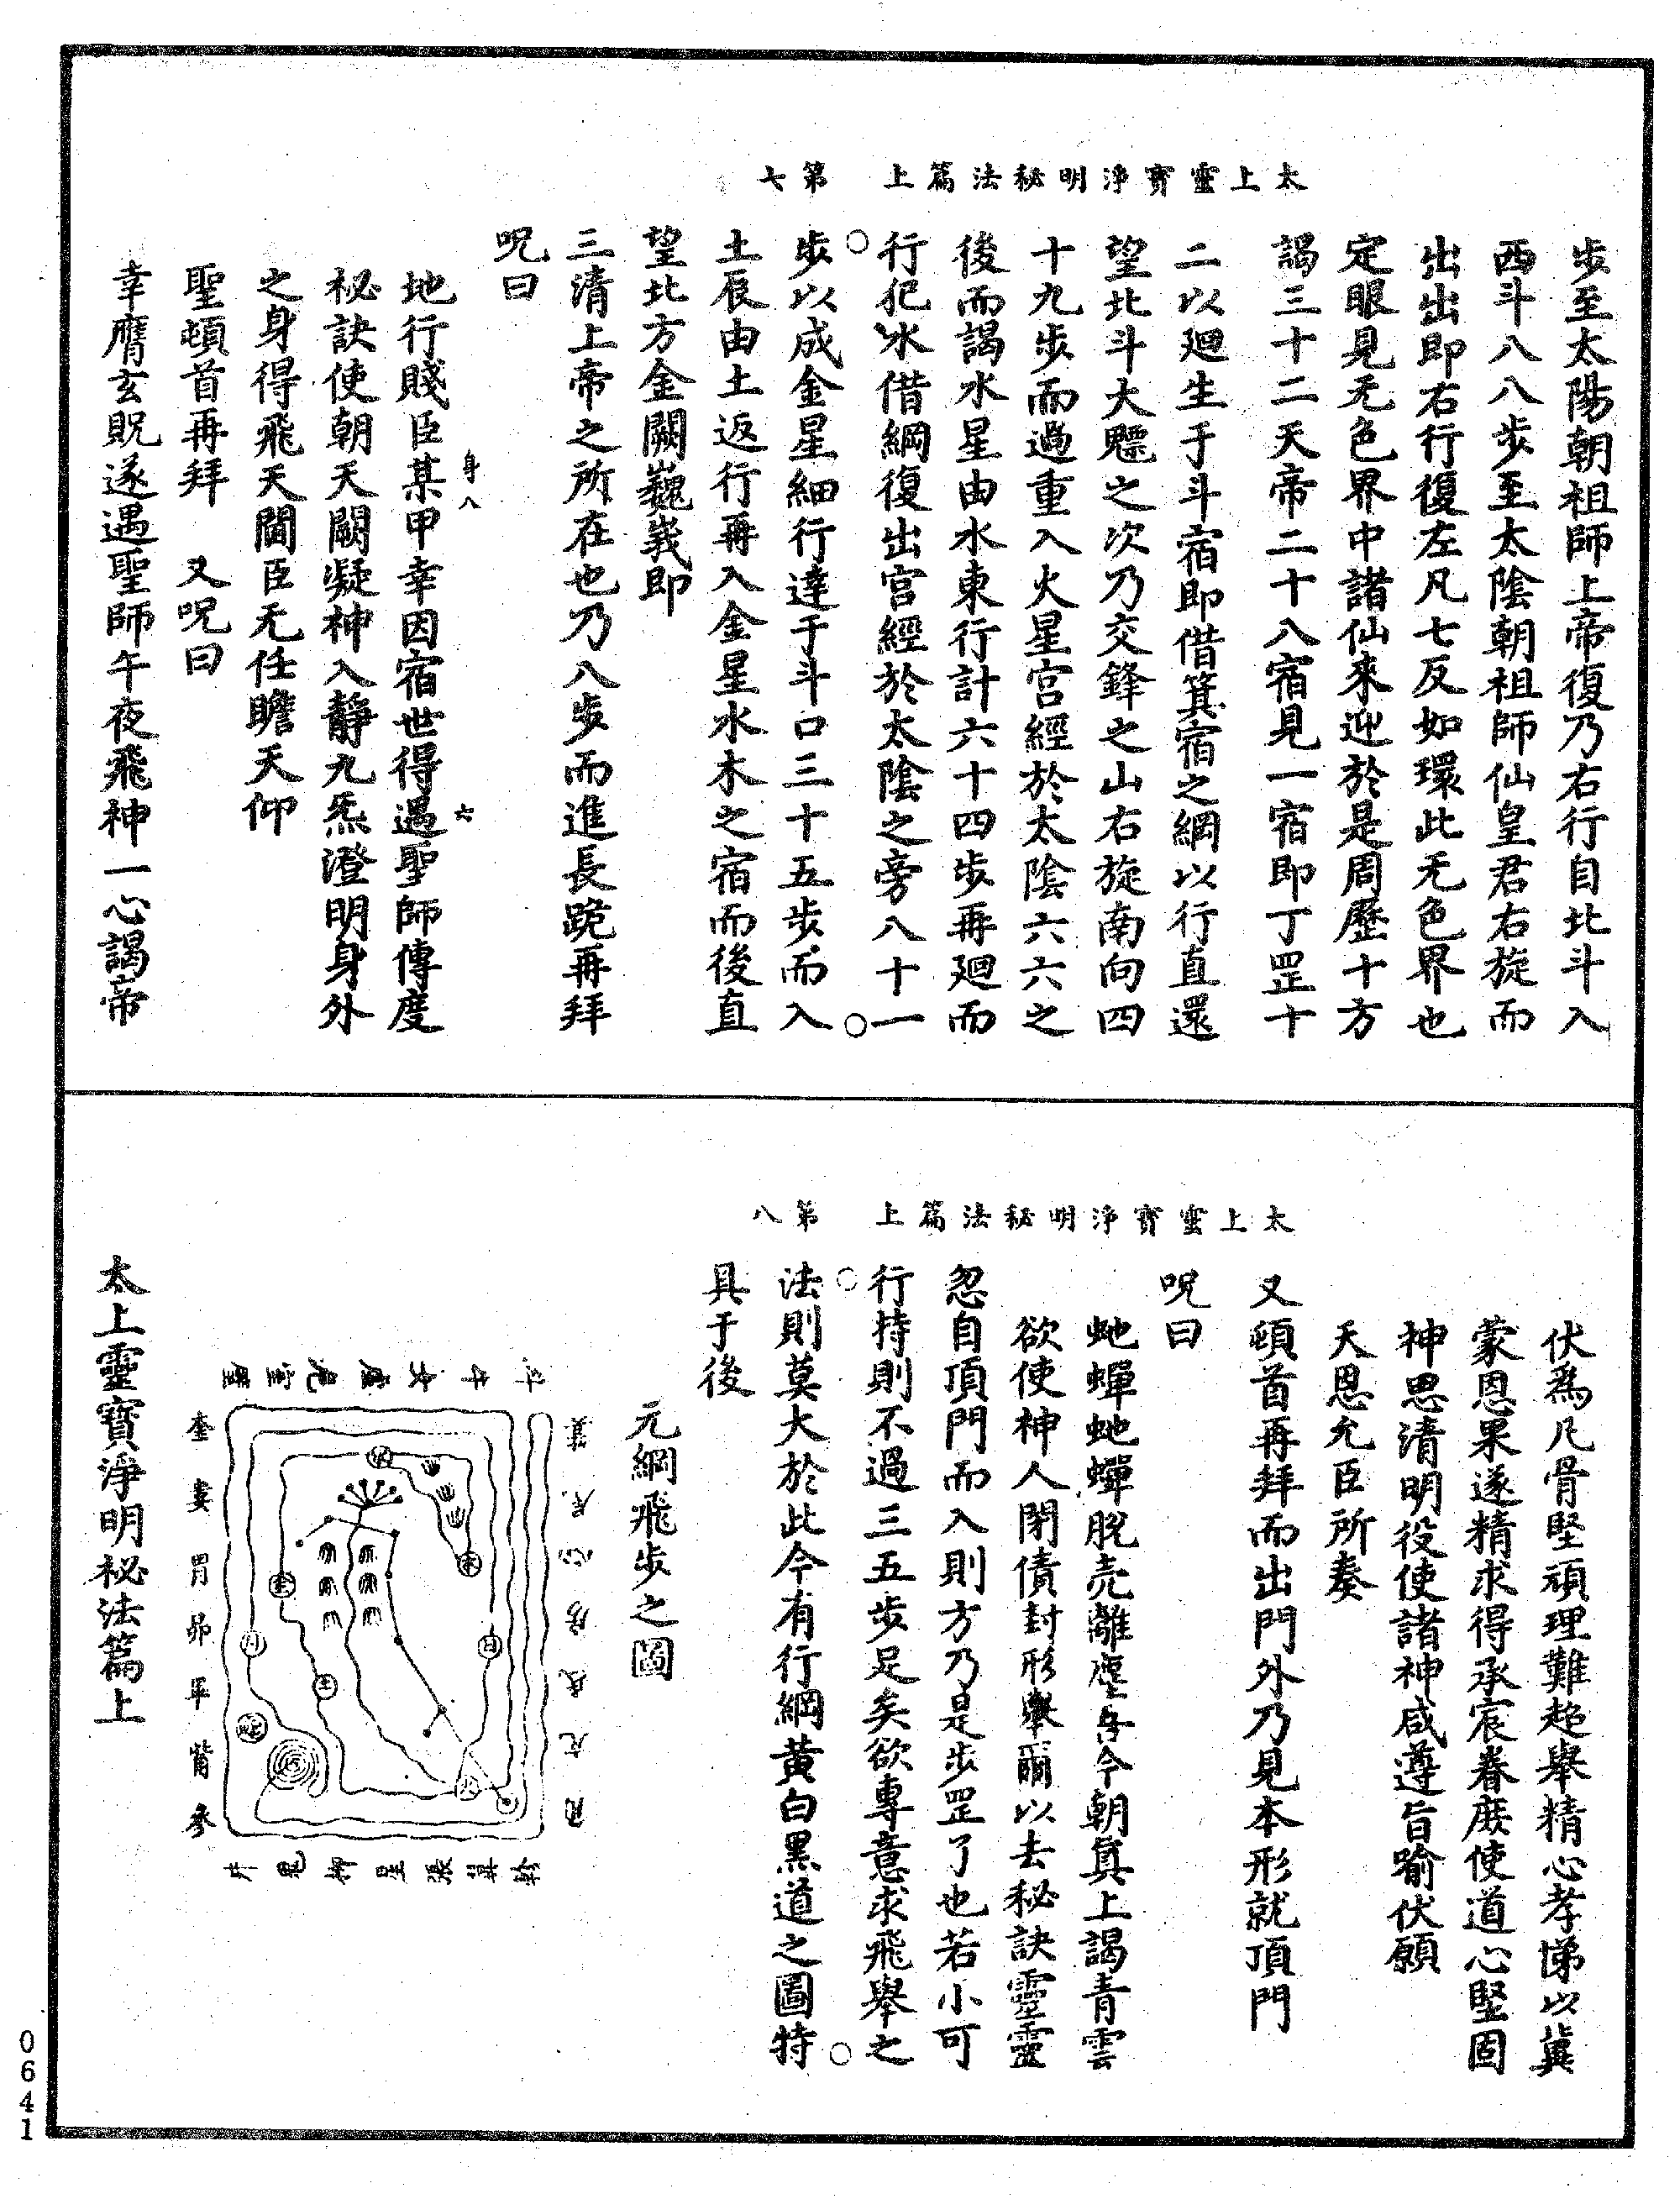 太上靈寶淨明秘法篇上　第七
步至太陽朝祖師上帝復乃右行自北斗入
西斗八八步至太陰朝祖師仙皇君右旋而
出出即右行復左凡七反如環此无色界也
定眼見无色界中諸仙來迎於是周歷十方
謁三十二天帝二十八宿見一宿即丁罡十
二以廻生于斗宿即借箕宿之綱以行直還
望北斗大魒之次乃交鋒之山右旋南向四
十九步而過重入火星宮經於太陰六六之
後而謁水星由水東行計六十四步再廻而
行犯水借綱復出宮經於太陰之旁八十一
步以成金星細行達于斗口三十五步而入
土辰由土返行再入金星水木之宿而後直
望北方金闕巍峩即
三清上帝之所在也乃八步而進長跪再拜
呪曰
地行賤臣某甲幸因宿世得遇聖師傳度
身八　六
秘訣使朝天闕凝神入靜九炁澄明身外
之身得飛天閽臣无任瞻天仰
聖頓首再拜　又呪曰
幸膺玄貺遂遇聖師午夜飛神一心謁帝
太上靈寶淨明秘法篇上　第八
伏爲凡骨堅頑理難超舉精心孝悌以冀
蒙恩果遂精求得承宸眷庶使道心堅固
神思清明役使諸神咸遵旨喻伏願
天恩允臣所奏
又頓首再拜而出門外乃見本形就頂門
呪曰
虵蟬虵蟬脫壳離塵吾今朝眞上謁青雲
欲使神人閉債封形舉爾以去秘訣靈靈
忽自頂門而入則方乃是步罡了也若小可
行持則不過三五步足矣欲專意求飛舉之
法則莫大於此今有行綱黃白黑道之圖特
具于後
元綱飛步之圖
斗牛女虛危室壁
箕尾心房氐亢角
奎婁胃昴畢觜參
井鬼柳星張翼軫
日
月
太上靈寶淨明秘法篇上
0641